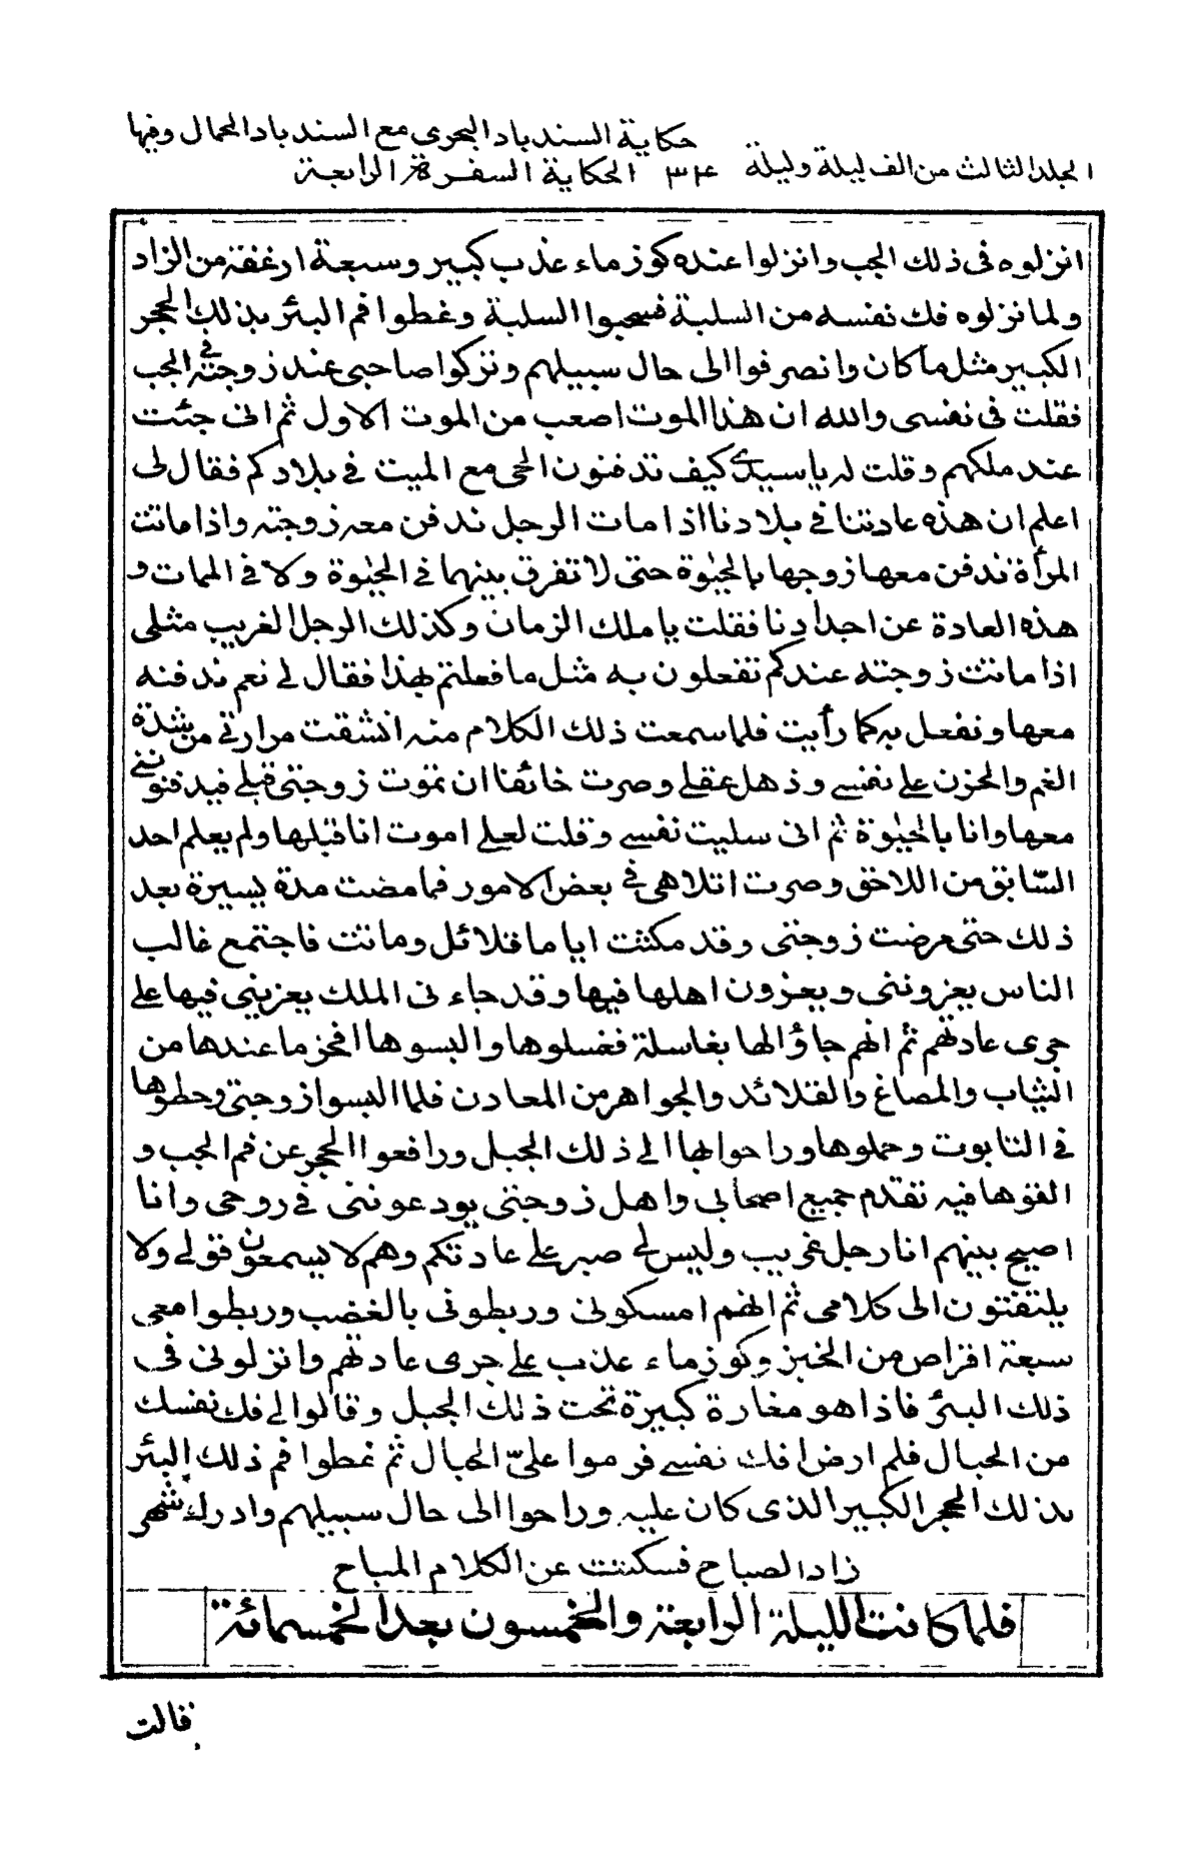 حكاية السندباد البحرى مع السندباد الحمال وفيها
المجلد الثالث من الف ليلة وليلة ٣٤ الحكاية السفرة الرابعة
انزلوه فى ذلك الجب وانزلوا عنده كوز ماء عذب كبير وسبعة ارغفة من الزاد
ولما نزلوه فك نفسه من السلبة فسحبوا السلبة وغطوا فم البئر بذلك الحجر
الكبير مثل ما كان وانصرفوا الى حال سبيلهم وتركوا صاحبى عند زوجته فى الجب
فقلت فى نفسى والله ان هذا الموت اصعب من الموت الاول ثم انى جئت
عند ملكهم وقلت له يا سيدى كيف تدفنون الحى مع الميت فى بلادكم فقال لى
اعلم ان هذه عادتنا فى بلادنا اذا مات الرجل ندفن معه زوجته واذا ماتت
المرأة ندفن معها زوجها بالحيوة حتى لا تفرق بينهما فى الحيوة ولا فى الممات و
هذه العادة عن اجدادنا فقلت يا ملك الزمان وكذلك الرجل الغريب مثلى
اذا ماتت زوجته عندكم تفعلون به مثل ما فعلتم بهذا فقال لى نعم ندفنه
معها ونفعل به كما رأيت فلما سمعت ذلك الكلام منه انشقت مرارتى من شدة
الغم والحزن على نفسى وذهل عقلى وصرت خائفا ان تموت زوجتى قبلى فيدفنوننى
معها وانا بالحيوة ثم انى سليت نفسى وقلت لعلى اموت انا قبلها ولم يعلم احد
السّابق من اللاحق وصرت اتلاهى فى بعض الامور فما مضت مدة يسيرة بعد
ذلك حتى مرضت زوجتى وقد مكثت اياما قلائل وماتت فاجتمع غالب
الناس يعزوننى ويعزون اهلها فيها وقد جاء نى الملك يعزينى فيها على
جرى عادتهم ثم انهم جاؤا لها بغاسلة فغسلوها والبسوها افخر ما عندها من
الثياب والمصاغ والقلائد والجواهر من المعادن فلما البسوا زوجتى وحطوها
فى التابوت وحملوها وراحوا بها الى ذلك الجبل ورافعوا الحجر عن فم الجب و
القوها فيه تقدم جميع اصحابى واهل زوجتى يودعوننى فى روحى وانا
اصيح بينهم انا رجل غريب وليس لى صبر على عادتكم وهم لا يسمعون قولى ولا
يلتفتون الى كلامى ثم انهم امسكونى وربطونى بالغضب وربطوا معى
سبعة اقراص من الخبز وكوز ماء عذب على جرى عادتهم وانزلونى فى
ذلك البئر فاذا هو مغارة كبيرة تحت ذلك الجبل وقالوا لى فك نفسك
من الحبال فلم ارض افك نفسى فرموا علىّ الحبال ثم غطوا فم ذلك البئر
بذلك الحجر الكبير الذى كان عليه وراحوا الى حال سبيلهم وادرك شهر
زاد الصباح فسكتت عن الكلام المباح
فلما كانت الليلة الرابعة والخمسون بعد الخمسمائة
قالت